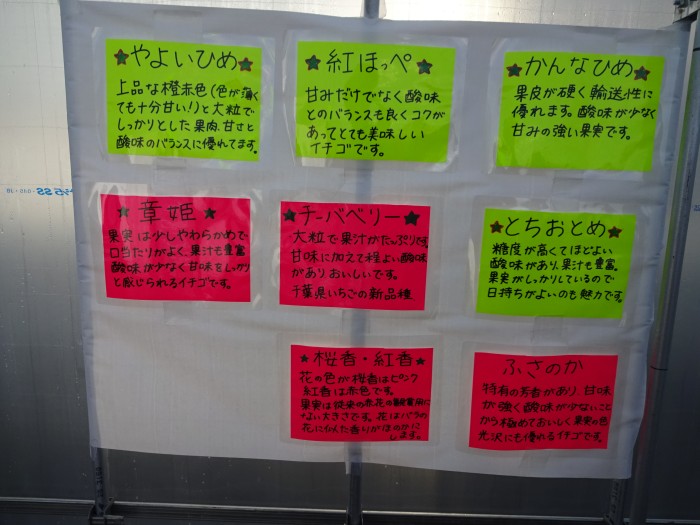 ★やよいひめ★
上品な橙赤色(色が薄く
ても十分甘い!)と大粒で
しっかりとした果肉、甘さと
酸味のバランスに優れてます。
★紅ほっぺ★
甘みだけでなく酸味
とのバランスも良くコクが
あってとても美味しい
イチゴです。
★かんなひめ★
果皮が硬く輸送性に
優れます。酸味が少なく
甘みの強い果実です。
★章姫★
果実は少しやわらかめで
口当たりがよく、果汁も豊富
酸味が少なく甘味をしっかり
と感じられるイチゴです。
★チーバベリー★
大粒で果汁がたっぷりです。
甘味に加えて程よい酸味
がありおいしいです。
千葉県いちごの新品種
★とちおとめ★
糖度が高くてほどよい
酸味があり、果汁も豊富。
果実がしっかりしているので
日持ちがよいのも魅力です。
★桜香・紅香★
花の色が桜香はピンク
紅香は赤色です。
果実は従来の赤花は観賞用に
ない大きさです。花はバラの
花に似た香りがほのかに
します。
ふさのか
特有の芳香があり、甘味
が強く酸味が少ないこと
から極めておいしく果実の色
光沢にも優れるイチゴです。